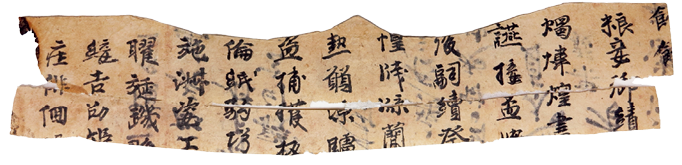 粮妾御績
燭煒煌晝
讌接盃
後嗣續祭
惶牋牒簡
熱願涼驢
盜捕獲叛
倫紙鈞巧
施淑姿工
曜旋璣懸
綏吉劭矩
莊徘徊